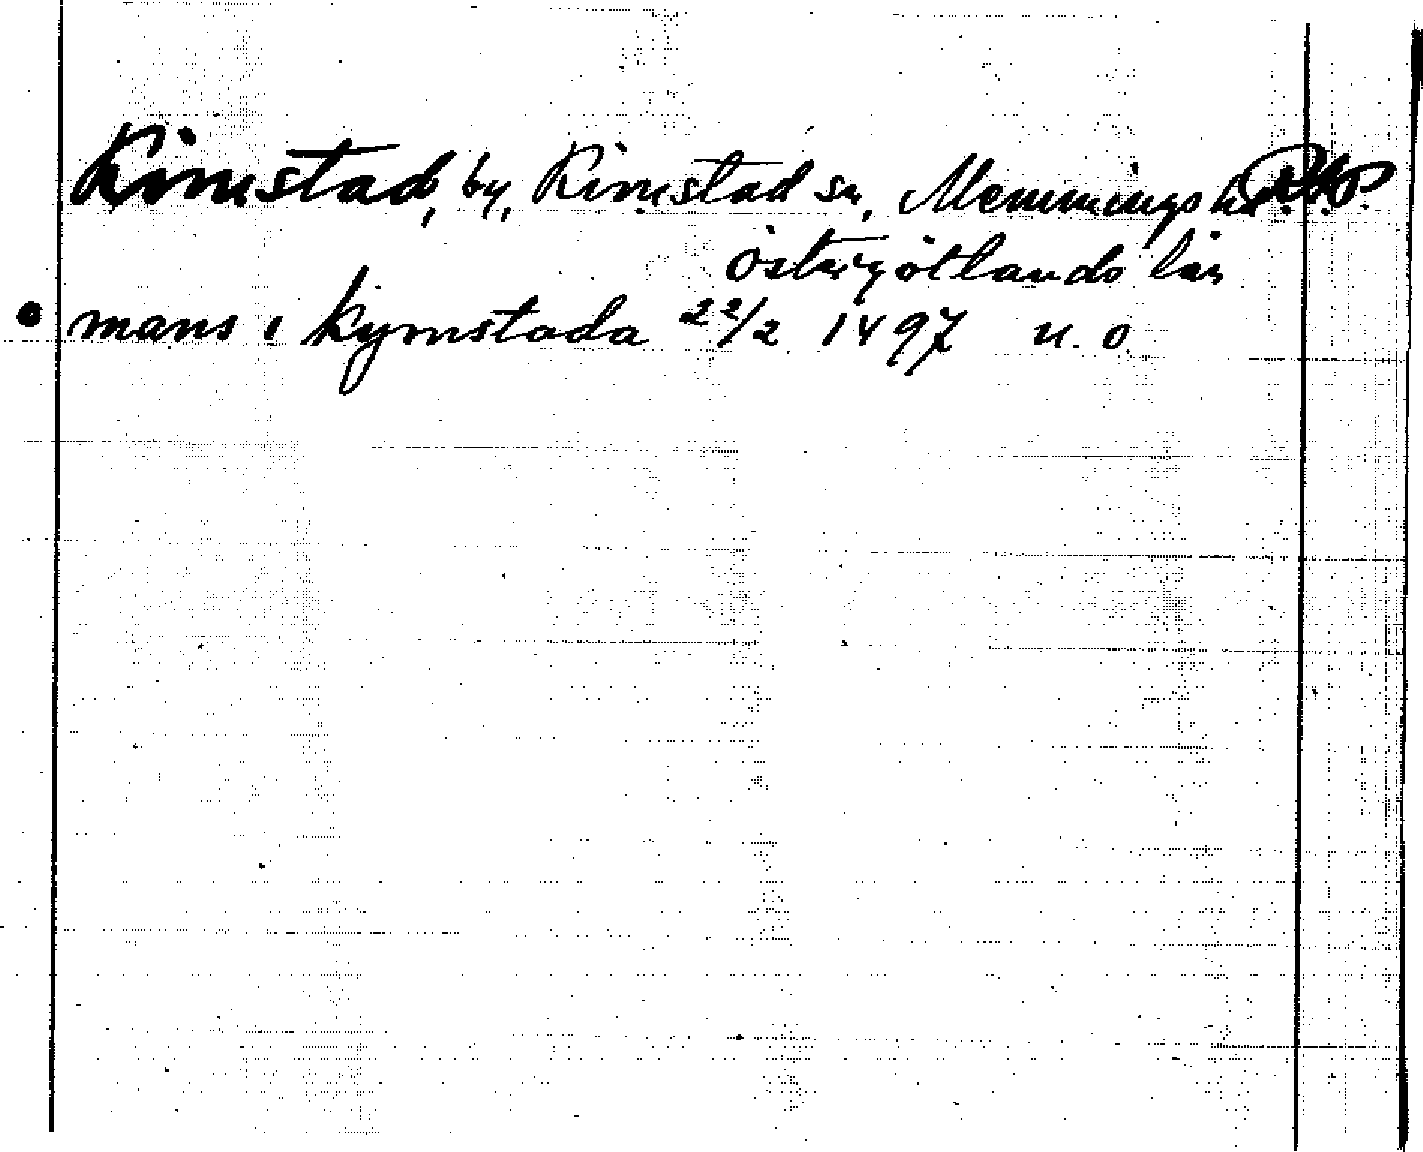 Kimstad, by, Kimstad sn, Memmings hd
Östergötlands län
mans i kymstada 22/2 1497 u. o.